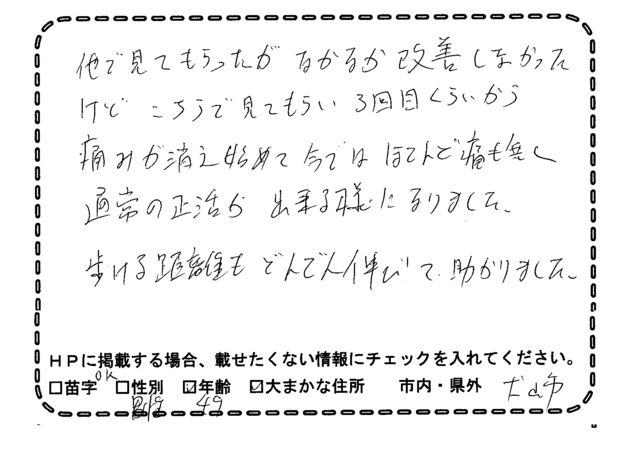 他で見てもらったが なかなか 改善しなかった
けど こちらで見てもらい 3回目くらいから
痛みが消え始めて 今では ほとんど痛も無く
通常の正活が 出来る様になりました、
歩ける距離も どんどん伸びて 助かりました、
HPに掲載する場合、載せたくない情報にチェックを入れてください。
□苗字 OK □性別 ☑年齢 ☑大まかな住所 市内・県外 犬山市
男性 49